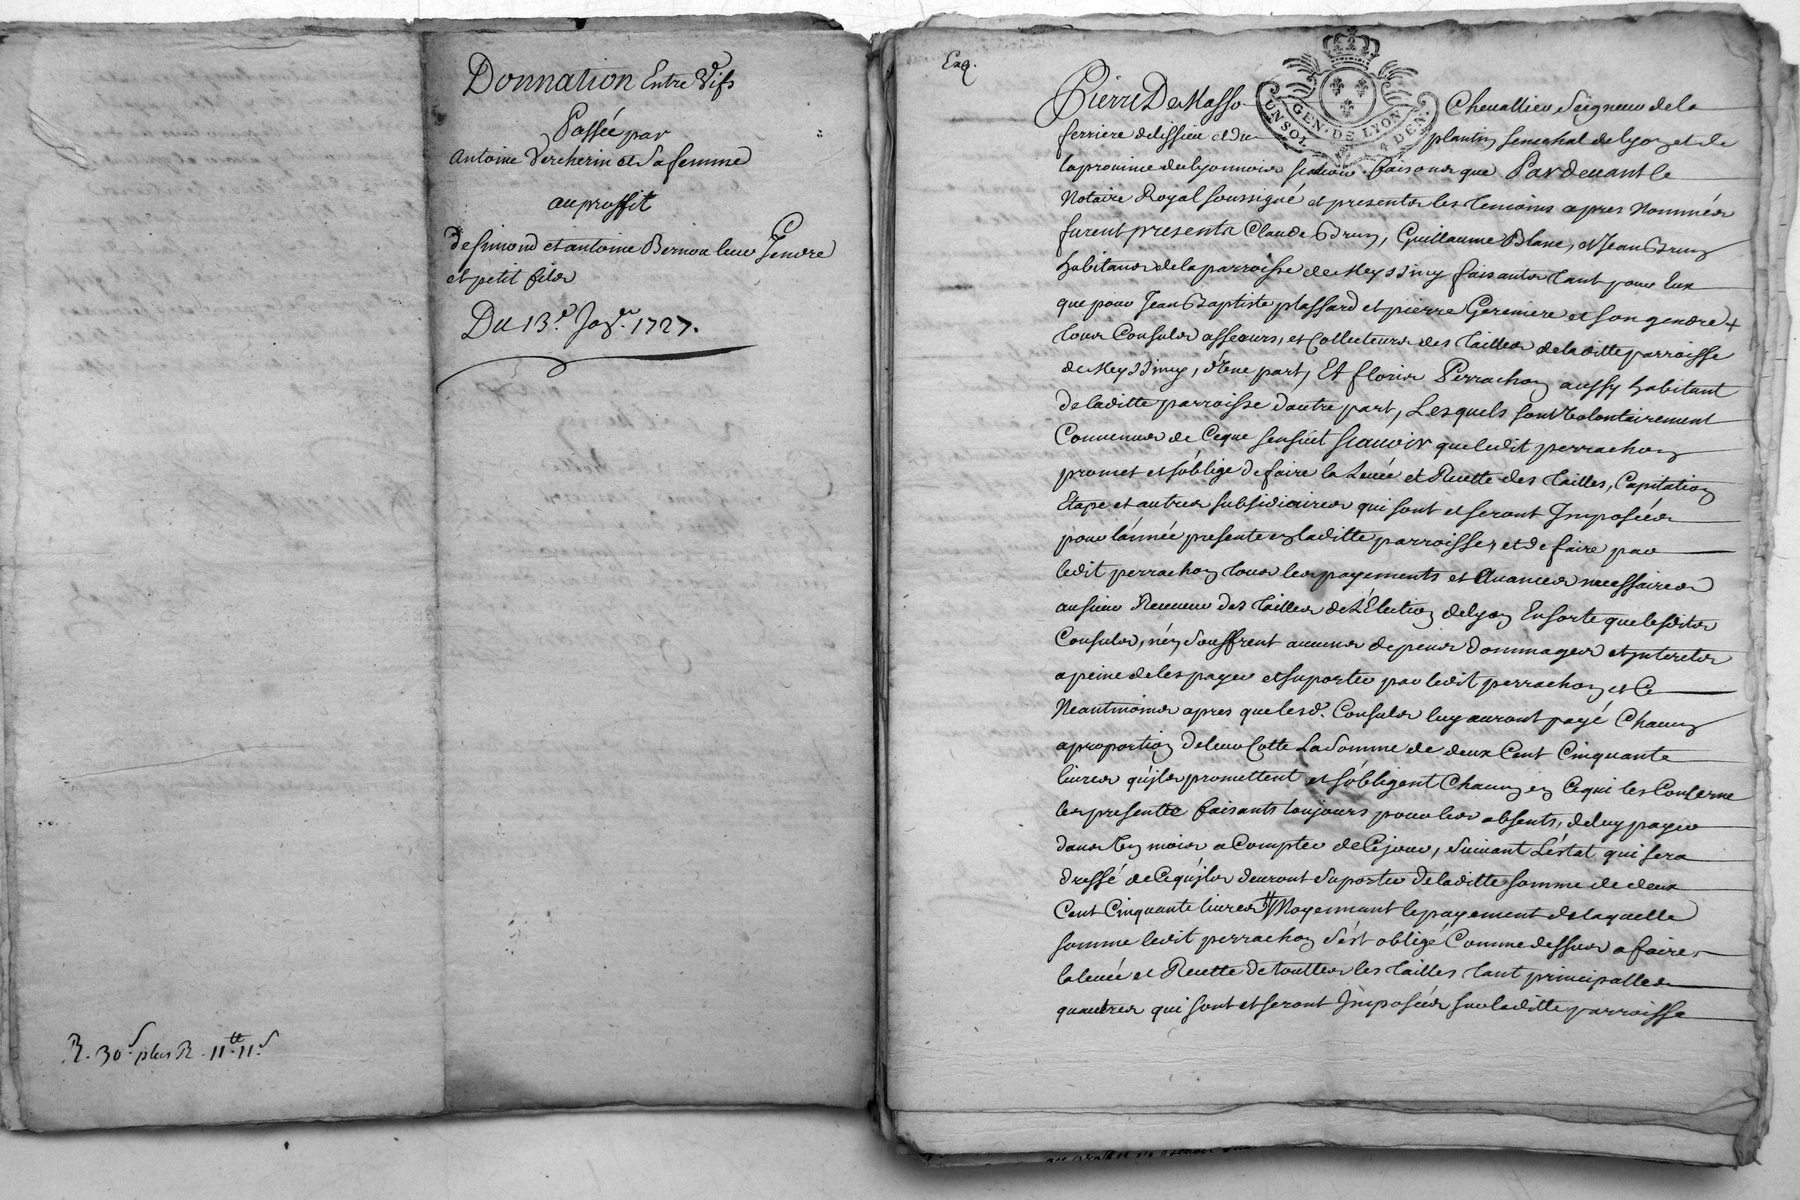 Donnation Entre Vifs
Passée par
antoine Vercherin et Sa femme
au proffit
de Simond et antoine Bernou leur Gendre
et petit fils
Du 13.e Jan.er 1727.
R. 30s plus R. 11tt. 11s
Exq.
GEN. DE LYON
UN SOL 4 DEN.
Pierre De Masso Chevallier Seigneur de la
ferriere de lissieu et du plantin senechal de lyon et de
la province de lyonnois scavoir faisons que Pardevant le
Notaire Royal soussigné et presents les temoins apres Nommés
furent presents Claude Brun, Guillaume Blanc, et Jean Brun
habitans de la parroisse de Meyssimy faisants tant pour eux
que pour Jean Baptiste plassard et pierre Geremere et son gendre +
tous Consuls asseeurs, et Collecteurs des tailles de laditte parroisse
de Meyssimy, d'Une part, Et floris Perrachon aussy habitant
de laditte parroisse d'autre part, Lesquels sont Volontairement
Convenus de Ceque sensuit scavoir que ledit perrachon
promet et s'oblige de faire la Levée et Recette des tailles, Capitation
Etape et autres subsidiaires qui sont et seront Imposées
pour l'année presente en laditte parroisse, et de faire par
ledit perrachon tous les payements et Avances necessaires
au sieur Receveur des tailles de l'Election de lyon En sorte que lesdits
Consuls, n'en souffrent aucuns depens dommages et interets
a peine de les payer et suporter par ledit perrachon, et Ce
Neantmoins apres que lesd. Consuls luy auront payé Chacun
a proportion de leur Cotte La Somme de deux Cent Cinquante
livres qu'ils promettent et s'obligent Chacun en Cequi les Conserne
les presents faisants toujours pour les absents, de luy payer
dans Un mois a Compter de Cejour, suivant L'estat qui sera
dressé de Cequ'ils devront suporter de laditte somme de deux
Cent Cinquante livres Moyennant le payement de laquelle
somme ledit perrachon s'est obligé Comme dessus a faire
la levée et Recette de touttes les tailles tant principalles
qu'autres qui sont et seront Imposées sur laditte parroisse